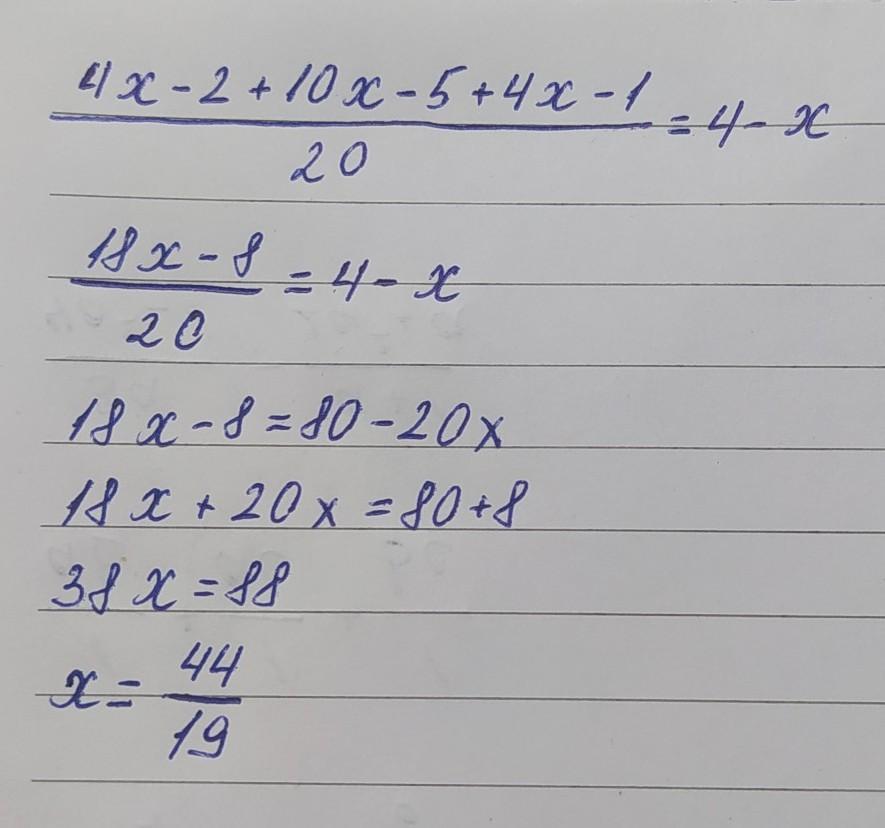 4x-2+10x-5+4x-1
20
=4-x
18x-8
20
=4-x
18x-8=80-20x
18x+20x=80+8
38x=88
x=
44
19